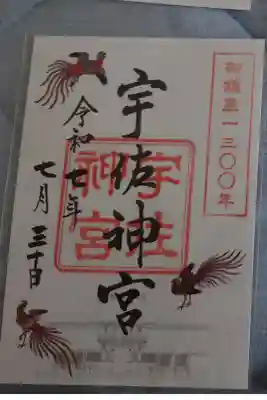 御鎮座一三〇〇年
宇佐神宮
宇佐
神宮
令和七年
七月三十日